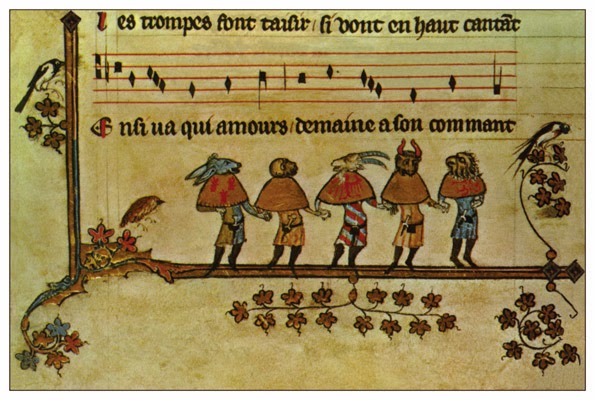 Les trompes font taisir / si vont en haut cantāt
Ensi ua qui amours / demaine a son commant